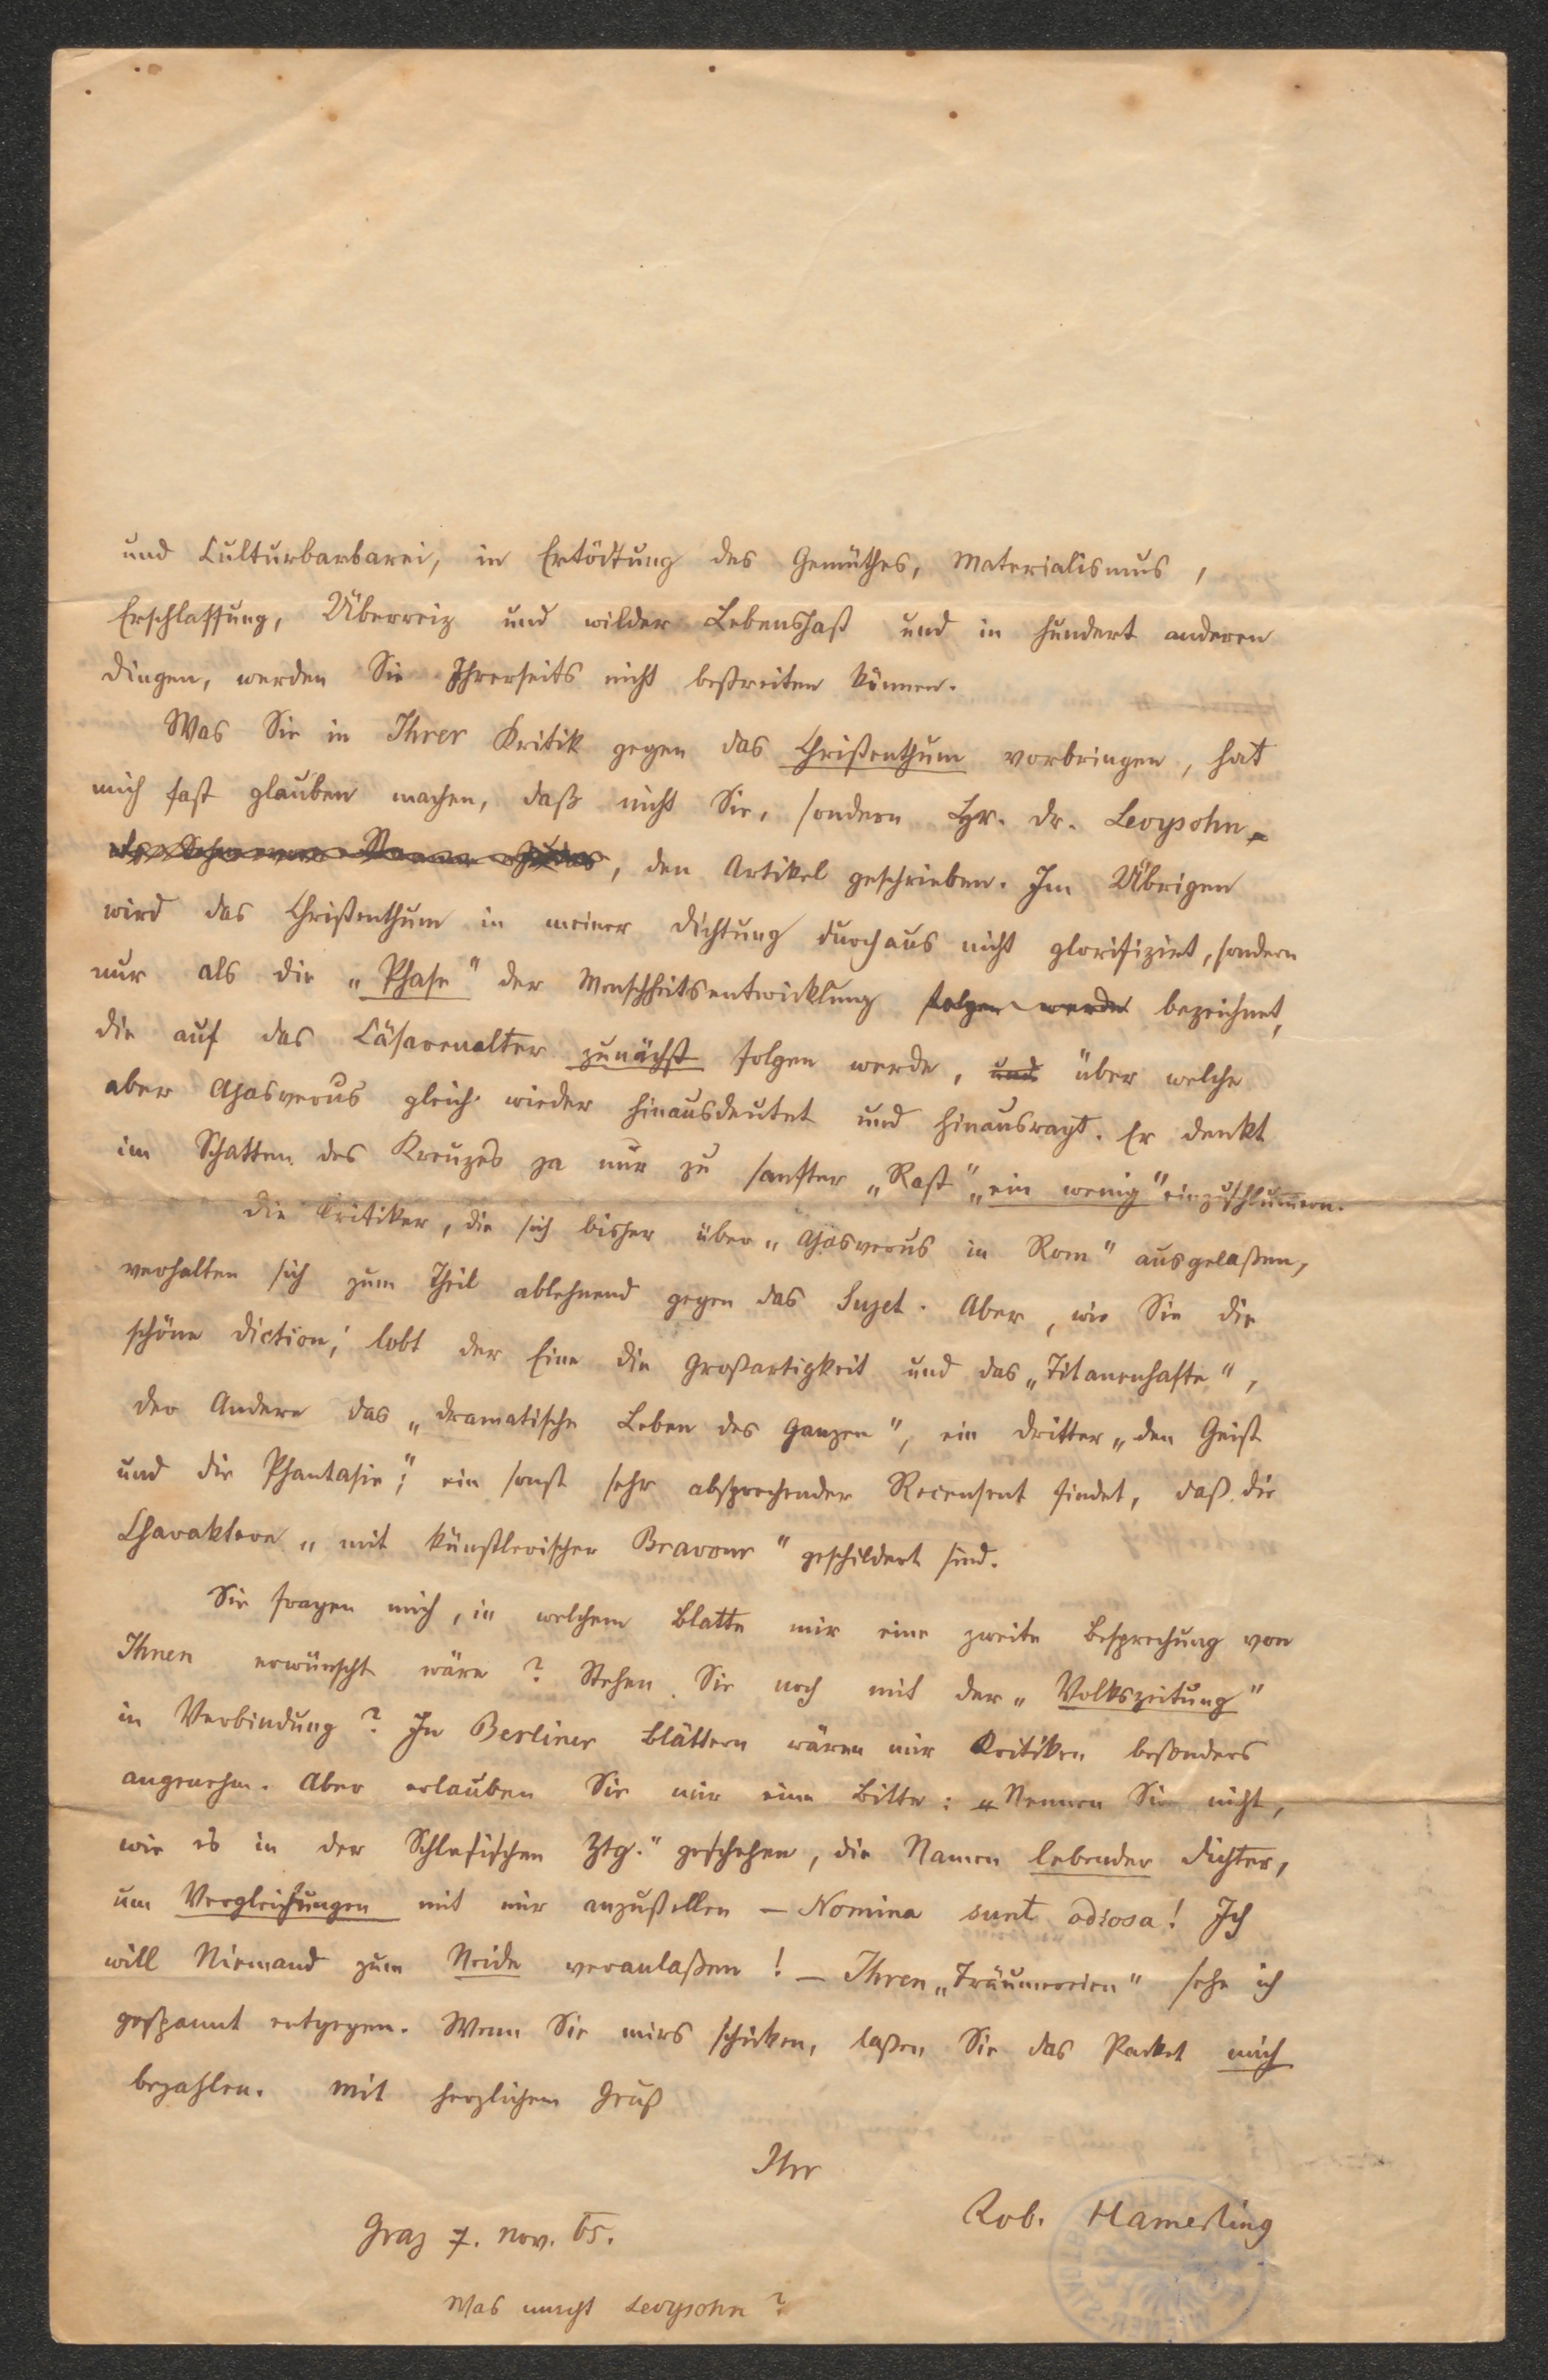 und Culturbarbarei, in Ertödtung des Gemüthes, Materialismus,
Erschlaffung, Überreiz und wilder Lebenshast und in hundert anderen
Dingen, werden Sie Ihrerseits nicht bestreiten können.
Was Sie in Ihrer Kritik gegen das Christenthum vorbringen, hat
mich fast glauben machen, daß nicht Sie, sondern Hr. Dr. Levysohn
, den Artikel geschrieben. Im Übrigen
wird das Christenthum in meiner Dichtung durchaus nicht glorifizirt, sondern
nur als die „Phase" der Menschheitsentwicklung folgen werde bezeichnet,
die auf das Cäsarenalter zunächst folgen werde, und über welche
aber Ahasverus gleich wieder hinausdeutet und hinausragt. Er denkt
im Schatten des Kreuzes ja nur zu sanfter „Rast" „ein wenig" einzuschlummern.
Die Kritiker, die sich bisher über „Ahasverus in Rom" ausgelaßen,
verhalten sich zum Theil ablehnend gegen das Sujet. Aber, wie Sie die
schöne Diction, lobt der Eine die Großartigkeit und das „Titanenhafte",
der Andere das „dramatische Leben des Ganzen", ein Dritter „den Geist
und die Phantasie"; ein sonst sehr absprechender Recensent findet, daß die
Charaktere „mit künstlerischer Bravour" geschildert sind.
Sie fragen mich, in welchem Blatte mir eine zweite Besprechung von
Ihnen erwünscht wäre? Stehen Sie noch mit der „Volkszeitung"
in Verbindung? In Berliner Blättern wären mir Kritiken besonders
angenehm. Aber erlauben Sie mir eine Bitte: „Nennen Sie nicht,
wie es in der Schlesischen Ztg." geschehen, die Namen lebender Dichter,
um Vergleichungen mit mir anzustellen – Nomina sunt odiosa! Ich
will Niemand zum Neide veranlaßen! – Ihren „Träumereien" sehe ich
gespannt entgegen. Wenn Sie mirs schicken, laßen Sie das Packet mich
bezahlen. Mit herzlichem Gruß
Ihr
Rob. Hamerling
Graz 7. Nov. 65.
Was macht Levysohn?